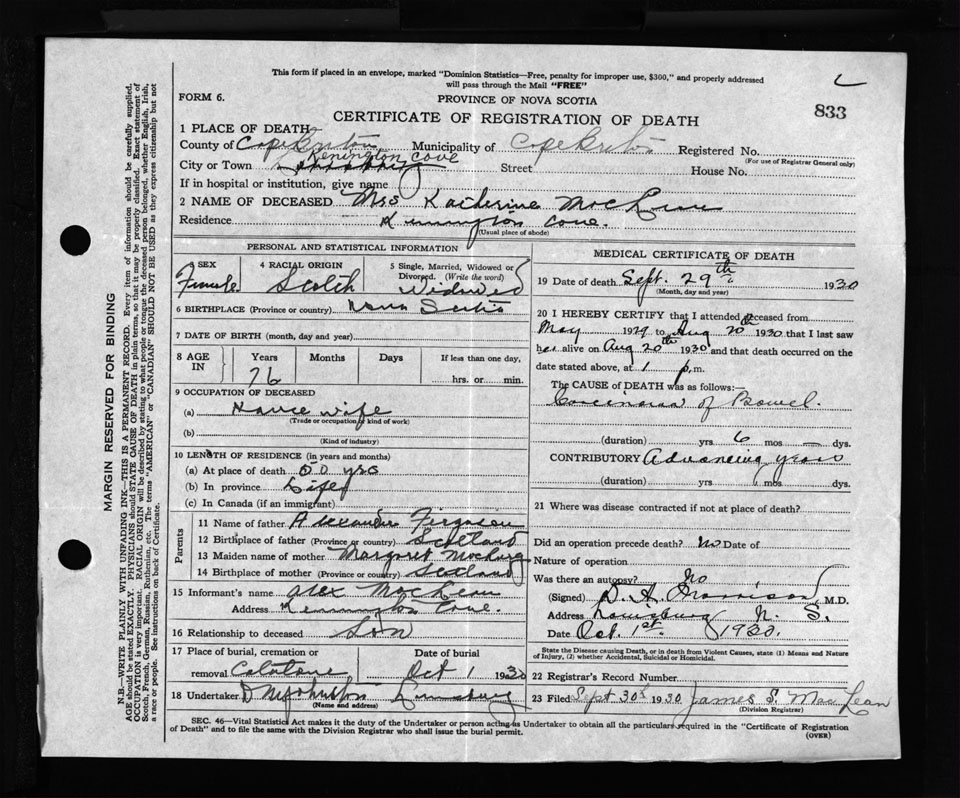 This form if placed in an envelope, marked "Dominion Statistics—Free, penalty for improper use, $300," and properly addressed
will pass through the Mail "FREE"
FORM 6.
PROVINCE OF NOVA SCOTIA
833
CERTIFICATE OF REGISTRATION OF DEATH
1 PLACE OF DEATH
County of Cape Breton Municipality of Cape Breton Registered No.
(For use of Registrar General only)
City or Town Kenington Cove Street House No.
If in hospital or institution, give name
2 NAME OF DECEASED Mrs Katherine MacLean
Residence Kennington Cove.
(Usual place of abode)
PERSONAL AND STATISTICAL INFORMATION
3 SEX 4 RACIAL ORIGIN 5 Single, Married, Widowed or Divorced. (Write the word)
Female Scotch Widowed
6 BIRTHPLACE (Province or country) Nova Scotia
7 DATE OF BIRTH (month, day and year)
8 AGE IN Years Months Days If less than one day,
76 hrs. or min.
9 OCCUPATION OF DECEASED
(a) House wife
(Trade or occupation or kind of work)
(b)
(Kind of industry)
10 LENGTH OF RESIDENCE (in years and months)
(a) At place of death 50 yrs
(b) In province Life
(c) In Canada (if an immigrant)
Parents
11 Name of father Alexander Ferguson
12 Birthplace of father (Province or country) Scotland
13 Maiden name of mother Margaret
14 Birthplace of mother (Province or country) Scotland
15 Informant's name Alex MacLean
Address Kennington Cove.
16 Relationship to deceased Son
17 Place of burial, cremation or removal Date of burial
Oct 1 1930
18 Undertaker
(Name and address)
MEDICAL CERTIFICATE OF DEATH
19 Date of death Sept. 29th 1930
(Month, day and year)
20 I HEREBY CERTIFY that I attended deceased from
May 1929 to Aug 20th 1930 that I last saw
her alive on Aug 20th 1930 and that death occurred on the
date stated above, at 1 p.m.
The CAUSE of DEATH was as follows:—
Carcinoma of Bowel.
(duration) yrs 6 mos — dys.
CONTRIBUTORY Advancing years
(duration) yrs mos dys.
21 Where was disease contracted if not at place of death?
Did an operation precede death? No Date of
Nature of operation
Was there an autopsy? No
(Signed) D. A. Morrison, M.D.
Address Louisburg N. S.
Date Oct. 1st. 1930.
State the Disease causing Death, or in death from Violent Causes, state (1) Means and Nature
of Injury, (2) whether Accidental, Suicidal or Homicidal.
22 Registrar's Record Number
23 Filed Sept 30th 1930 James S. MacLean
(Division Registrar)
SEC. 46—Vital Statistics Act makes it the duty of the Undertaker or person acting as Undertaker to obtain all the particulars required in the "Certificate of Registration
of Death" and to file the same with the Division Registrar who shall issue the burial permit.
(OVER)
MARGIN RESERVED FOR BINDING
N.B.—WRITE PLAINLY WITH UNFADING INK—THIS IS A PERMANENT RECORD. Every item of information should be carefully supplied.
AGE should be stated EXACTLY. PHYSICIANS should STATE CAUSE OF DEATH in plain terms, so that it may be properly classified. Exact statement of
OCCUPATION is very important. RACIAL ORIGIN will be described by stating to what people or tongue the deceased person belonged, whether English, Irish,
Scotch, French, German, Russian, Ruthenian, etc. The terms "AMERICAN" or "CANADIAN" SHOULD NOT BE USED as they express citizenship but not
a race or people. See instructions on back of Certificate.